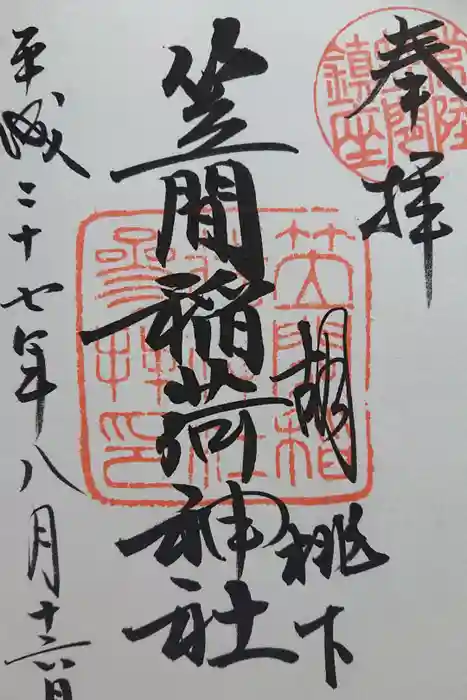 奉拝
常陸
笠間
鎮座
胡桃下
笠間稲荷神社
笠間稲
荷神社
参拝印
平成二十七年八月十六日